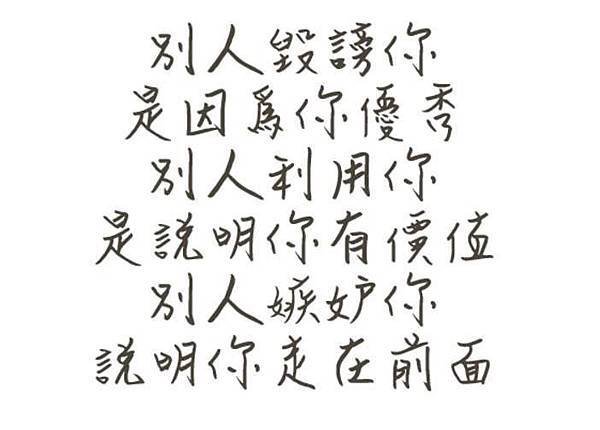 別人毀謗你
是因爲你優秀
別人利用你
是說明你有價值
別人嫉妒你
說明你走在前面